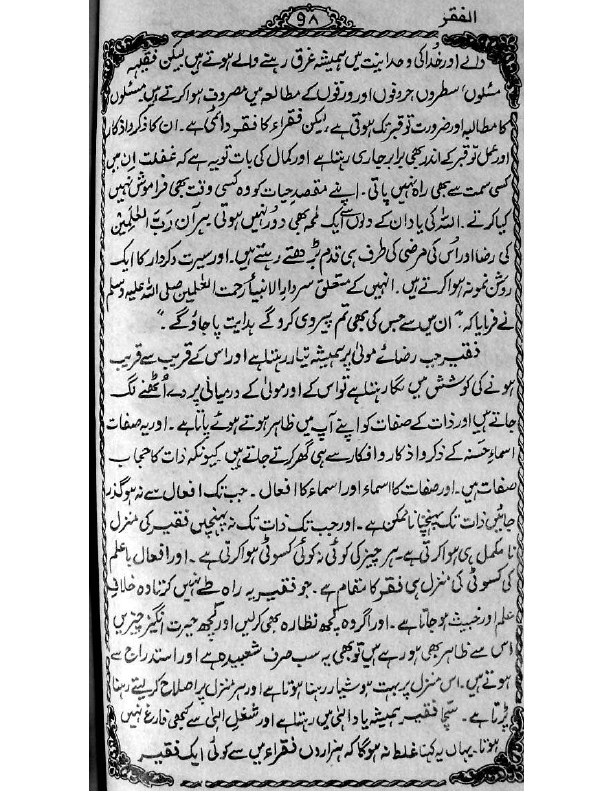 الفقر
۹۸
والے اور خدا کی وحدانیت میں ہمیشہ غرق رہنے والے ہوتے ہیں لیکن فقیہہ
مسئلوں، سطروں، حرفوں اور ورقوں کے مطالعہ میں مصروف ہوا کرتے ہیں مسئلوں
کا مطالبہ اور ضرورت تو قبر تک ہوتی ہے، لیکن فقراء کا فقر دائمی ہے۔ ان کا ذکر و اذکار
اور عمل تو قبر کے اندر بھی برابر جاری رہتا ہے اور کمال کی بات تو یہ ہے کہ غفلت ان میں
کسی سمت سے بھی راہ نہیں پاتی۔ اپنے مقصدِ حیات کو وہ کسی وقت بھی فراموش نہیں
کیا کرتے۔ اللہ کی یاد ان کے دلوں سے ایک لمحہ بھی دور نہیں ہوتی ہر آن رَبّ العٰلمین
کی رضا اور اُس کی مرضی کی طرف ہی قدم بڑھتے رہتے ہیں۔ اور سیرت و کردار کا ایک
روشن نمونہ ہوا کرتے ہیں۔ انہیں کے متعلق سردار الانبیاء رحمت العٰلمین صلی اللہ علیہ وسلم
نے فرمایا کہ "ان میں سے جس کی بھی تم پیروی کرو گے ہدایت پا جاؤ گے۔"
فقیر جب رضائے مولیٰ پر ہمیشہ تیار رہتا ہے اور اس کے قریب سے قریب
ہونے کی کوشش میں لگا رہتا ہے تو اس کے اور مولیٰ کے درمیانی پردے اُٹھنے لگ
جاتے ہیں اور ذات کے صفات کو اپنے آپ میں ظاہر ہوتے ہوئے پاتا ہے۔ اور یہ صفات
اسماءِ حَسَنہ کے ذکر و اذکار و افکار سے ہی گھر کرتے جاتے ہیں کیونکہ ذات کا حجاب
صفات ہیں۔ اور صفات کا اسماء اور اسماء کا افعال۔ جب تک افعال سے نہ ہو گذر
جائیں ذات تک پہنچنا ناممکن ہے۔ اور جب تک ذات تک نہ پہنچیں فقیر کی منزل
نامکمل ہی ہوا کرتی ہے۔ ہر چیز کی کوئی نہ کوئی کسوٹی ہوا کرتی ہے۔ اور افعال با علم
کی کسوٹی کی منزل ہی فقر کا مقام ہے۔ جو فقیر یہ راہ طے نہیں کرتا وہ خلافِ
علم اور خبیث ہو جاتا ہے۔ اور اگر وہ کچھ نظارہ بھی کرلیں اور کچھ حیرت انگیز چیزیں
اس سے ظاہر بھی ہو رہے ہیں تو بھی یہ سب صرف شعبیدہ ہے اور استدراج سے
ہوتے ہیں۔ اس منزل پر بہت ہوشیار رہنا ہوتا ہے اور ہر منزل پر اصلاح کر لیتے رہنا
پڑتا ہے۔ سچا فقیر ہمیشہ یادِ الٰہی میں رہتا ہے اور شغلِ الٰہی سے کبھی فارغ نہیں
ہوتا۔ یہاں یہ کہنا غلط نہ ہوگا کہ ہزاروں فقراء میں سے کوئی ایک فقیر